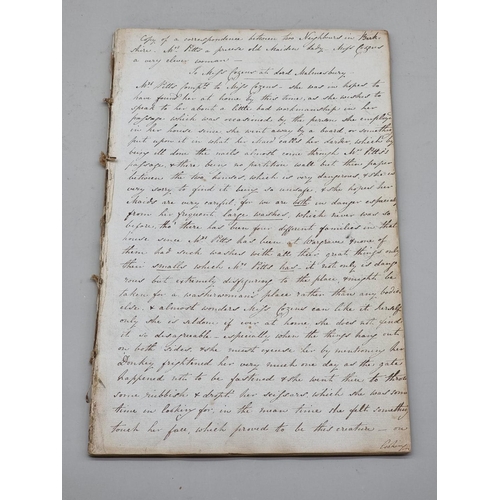 Copy of a correspondence between two Neighbours in Berk
shire. Mrs Pitts a precise old Maiden Lady, Miss Cozens
a very clever woman —
To Miss Cozens at Lord Malmesbury.
Mrs Pitts Compts to Miss Cozens — she was in hopes to
have found her at home by this time, as she wishes to
speak to her about a little bad workmanship in her
passage which was occasioned by the person she employed
in her house since she went away by a board or something
put upon it in what her Maid calls her larder, which by
being so done the nails almost come through Mrs Pitts's
passage, & there being no partition wall but thin paper
between the two houses, which is very dangerous & she is
very sorry to find it being so unsafe, & she hopes her
Maids are may careful for we are both in danger especially
from her frequent large washes, which never was so
before tho' there has been four different families in that
house since Mrs Pitts has been at Wargrave & none of
them had such washes with all their great things only
their smalls which Mrs Pitts has it not only is dange
rous but extremely disfiguring to the place, & might be
taken for a washerwoman's place rather than any bodies
else, & almost wonders Miss Cozens can like it herself
only she is seldom if ever at home she does not find
it so disagreable — especially when the things hang out
on both sides, & she must excuse her by mentioning her
Donkey frightened her very much one day as the gates
happened not to be fastened & she went there to throw
some rubbish & dropt her scissars, which she was some
time in looking for, in the mean time she felt something
touch her face, which proved to be this creature — on